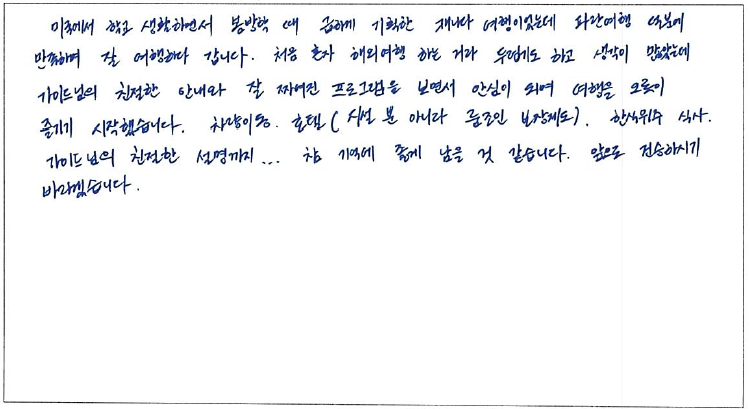 미국에서 학교 생활하면서 봄방학 때 급하게 기획한 캐나다 여행이었는데 파란여행 덕분에
만족하며 잘 여행하다 갑니다. 처음 혼자 해외여행 하는 거라 두렵기도 하고 생각이 많았는데
가이드님의 친절한 안내와 잘 짜여진 프로그램을 보면서 안심이 되며 여행을 오롯이
즐기기 시작했습니다. 차량이동. 호텔 (시설 뿐 아니라 보장제도). 한식위주 식사.
가이드님의 친절한 설명까지... 참 기억에 좋게 남을 것 같습니다. 앞으로 전승하시기
바라겠습니다.